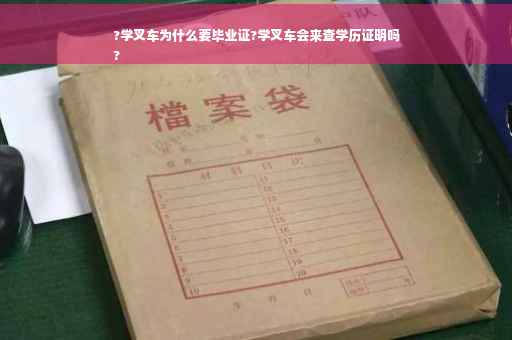 ?学叉车为什么要毕业证?学叉车会来查学历证明吗
?
檔案袋
材料目次
1
2
3
4
5
6
7
8
9
10
11
12
13
14
15
16
17
18
19
20
年 月 日